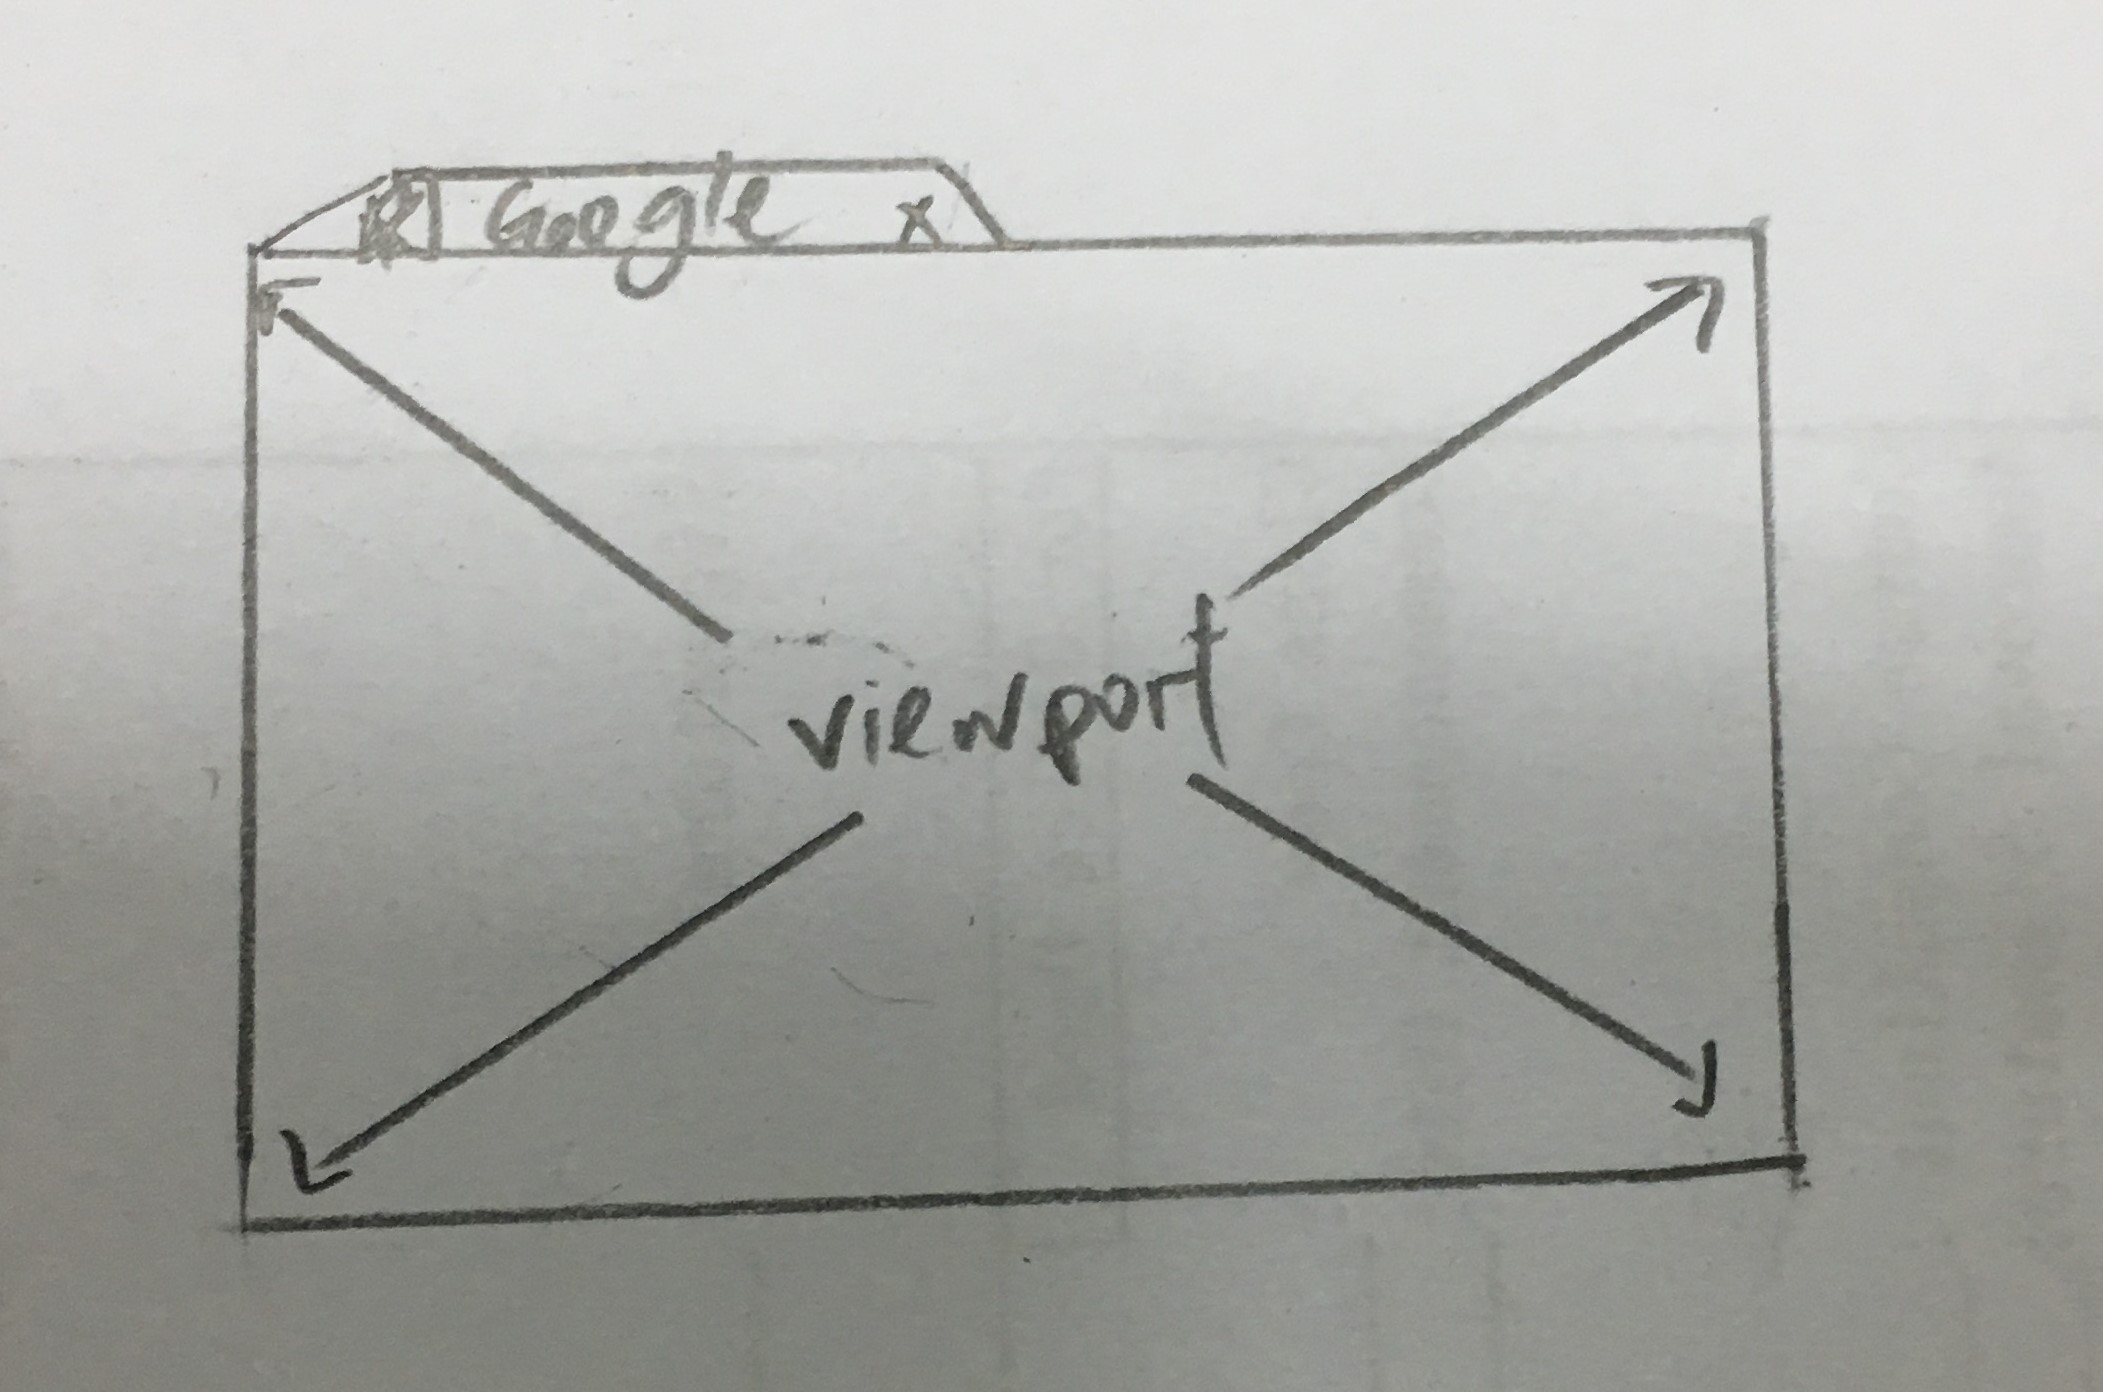 Google x
viewport